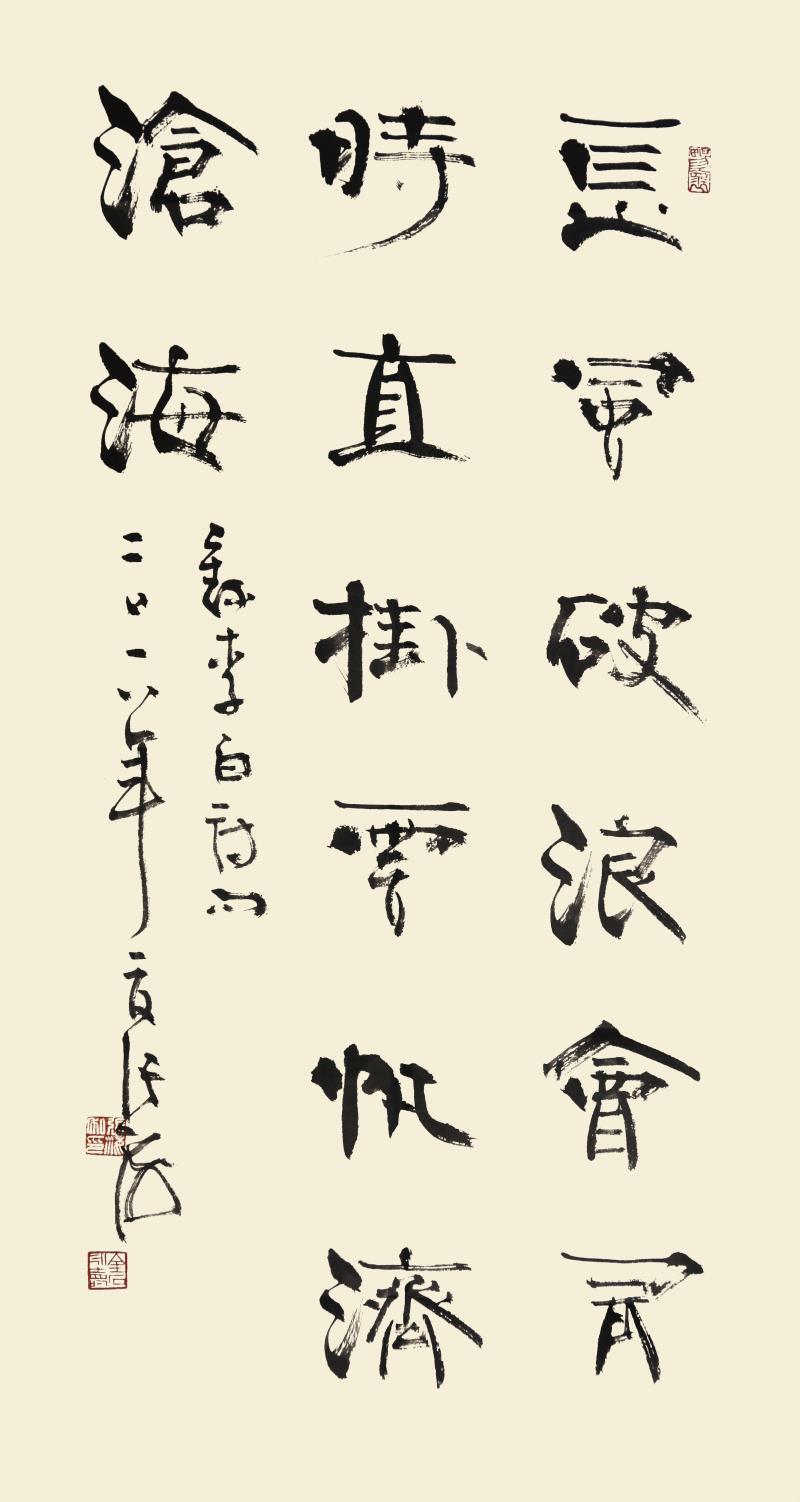 長風破浪會有
時直掛雲帆濟
滄海
錄李白詩句
二〇一八年夏張海